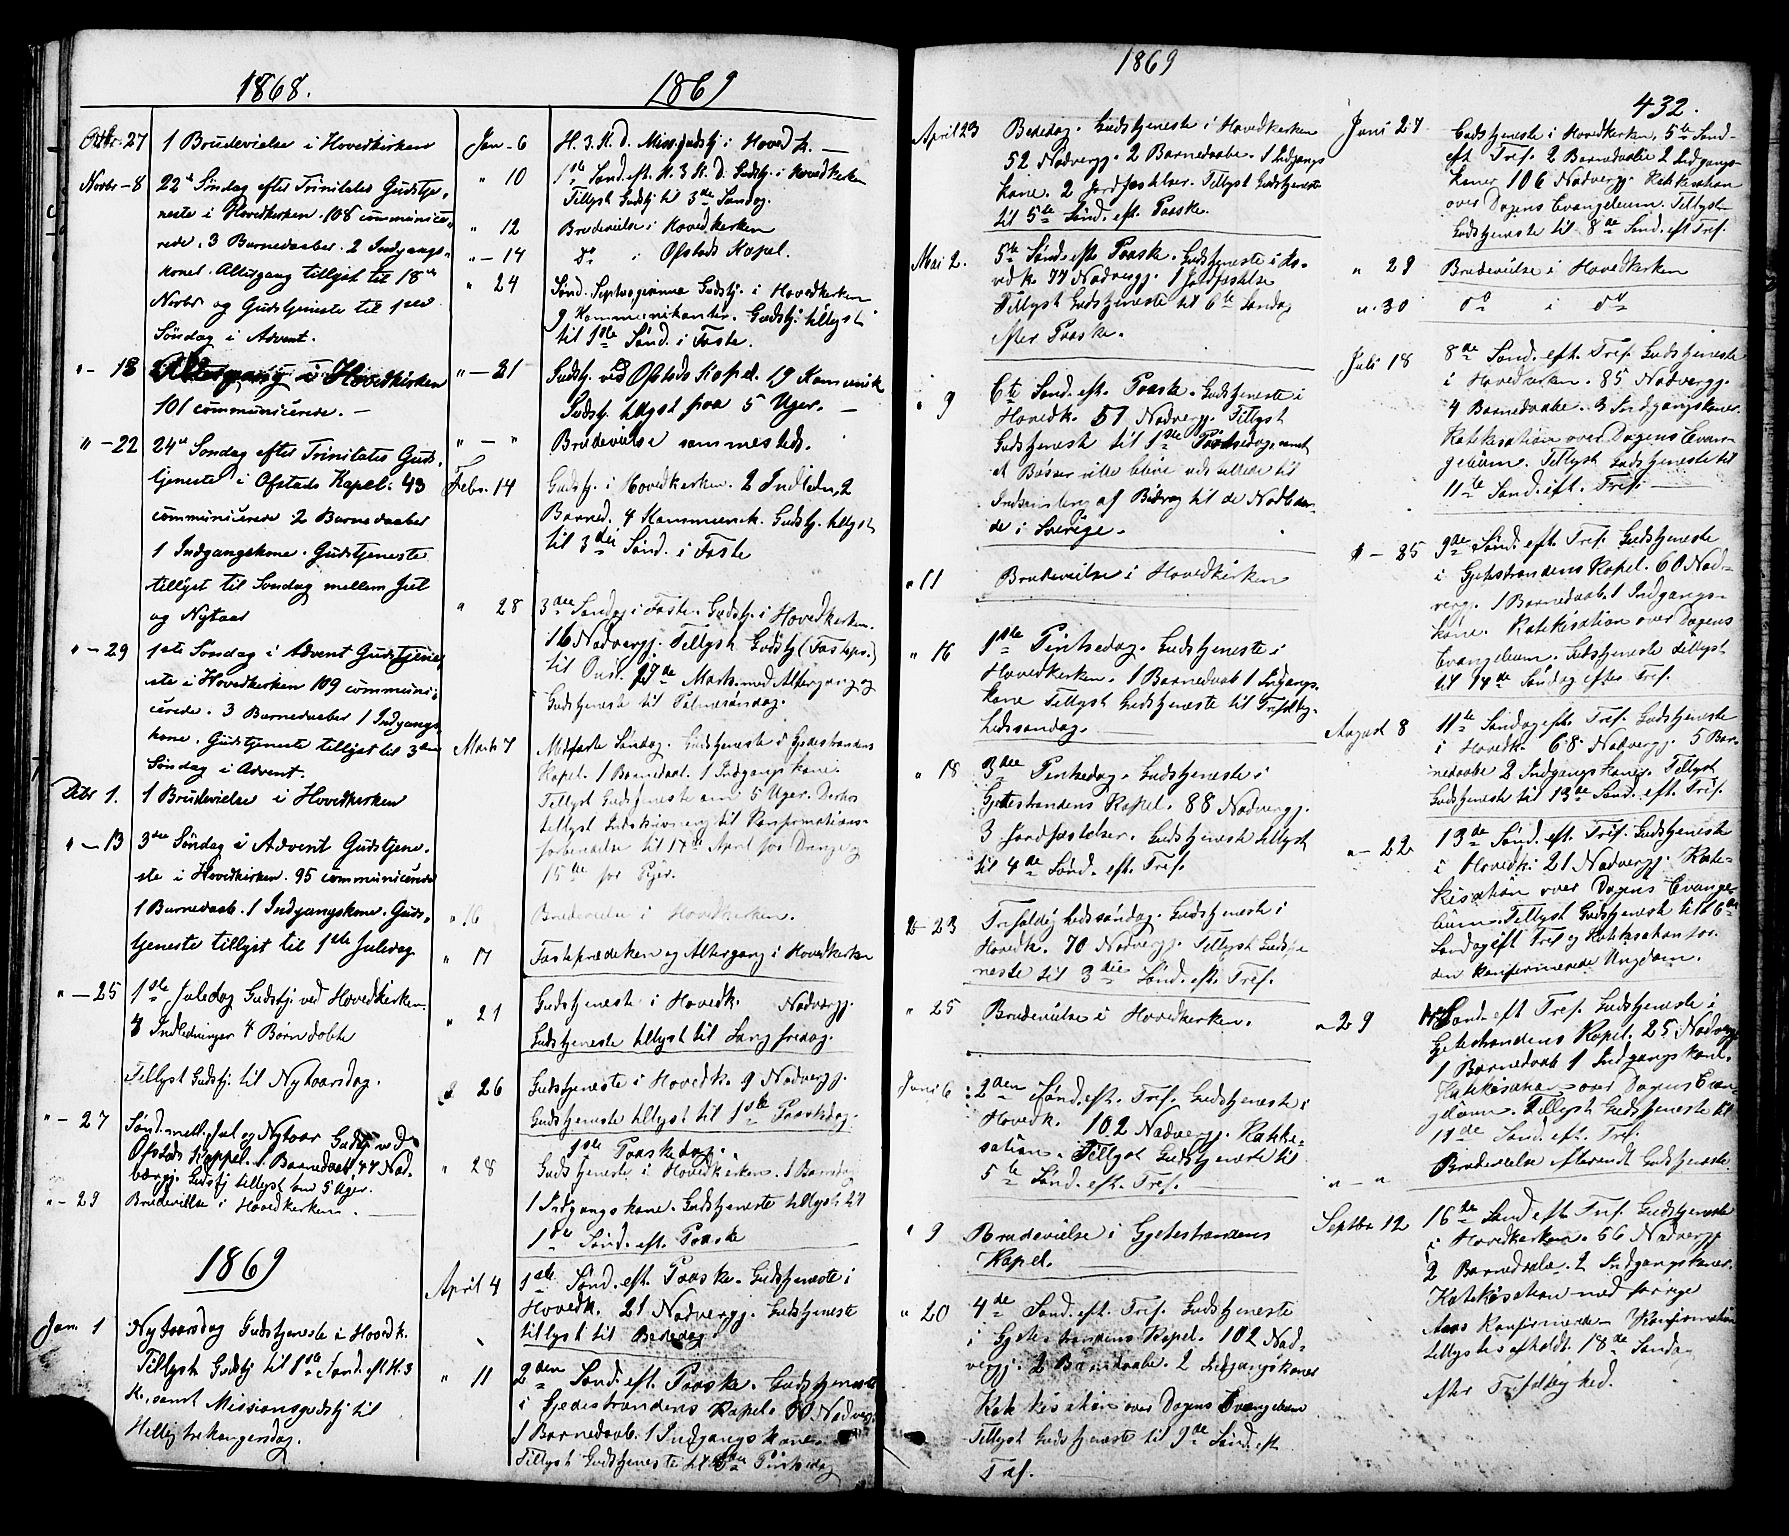 1868.
Octbr. 27 1 Brudevielse i Hovedkirken
Novbr - 8 22de Søndag efter Trinitates Gudstje-
neste i Hovedkirken. 108 communice-
rede. 3 Barnedaaber. 2 Indgangs-
koner. Altergang tillyst til 18de
Novbr og Gudstjeneste til 1ste
Søndag i Advent.
" - 18 Altergang i Hovedkirken
101 communicerede. -
" - 22 24de Søndag efter Trinitates Guds-
tjeneste i Ofstads Kapel. 43
communicerede 2 Barnedaaber
1 Indgangskone. Gudstjeneste
tillyst til Søndag mellem Jul
og Nytaar
" - 29 1ste Søndag i Advent Gudstjene-
ste i Hovedkirken 109 communi-
cerede. 3 Barnedaaber 1 Indgangs-
kone. Gudstjeneste tillyst til 3die
Søndag i Advent.
Dcbr 1. 1 Brudevielse i Hovedkirken
" - 13 3die Søndag i Advent Gudstjene-
ste i Hovedkirken. 95 communicerede
1 Barnedaab. 1 Indgangskone. Guds-
tjeneste tillyst til 1ste Juledag
" - 25 1ste Juledag Gudstj. ved Hovedkirken.
Indledninger 4 Børn døbte
Tillyst Gudstj. til Nytaarsdag.
" - 27 Sønd. mell. Jul og Nytaar Gudstj. ved
Ofstads Kappel. 1 Barnedaab 47 Nad-
værgj. Gudstj tillyst om 5 Uger.
" - 29 Brudevielse i Hovedkirken.
1869
Jan. 1 Nytaarsdag Gudstjeneste i Hovedk.
Tillyst Gudstj til 1ste Sønd. eft H. 3
K. samt Missionsgudstj til
Helligtrekongersdag.
1869
Jan - 6 H. 3. K. d. Miss. gudstj i Hoved k. -
" 10 1ste Sønd. eft. H. 3 K. d. Gudstj. i Hovedkirken
Tillyst Gudstj til 3die Søndag.
" 12 Brudevielse i Hovedkirken
" - 14 do i Ofstads Kapel.
" 24 Sønd. Septuagesima Gudstj. i Hovedkirken
9 Kommunikanter. Gudstj. tillyst
til 1ste Sønd. i Faste.
" - 21 Gudstj. ved Ofstads Kapel. 19 Komunik
Gudstj. tillyst paa 5 Uger. -
" - " Brudevielse sammesteds.
Febr. 14 Gudstj. i Hovedkirken. 2 Indledn, 2
Barned. 4 Kommunik. Gudstj. tillyst
til 3die Sønd. i Faste
" 28 3die Søndag i Faste. Gudstj. i Hovedkirken.
16 Nadvergj. Tillyst Gudstj (Fastepr.)
til Onsd. 17de Marts med Altergang og
Gudstjeneste til Palmesøndag.
Marts 7 Midfaste Søndag. Gudstjeneste i Gjedestrandens
Kapel. 1 Barnedaab. 1 Indgangskone.
Tillyst Gudstjeneste om 5 Uger. Derhos
tillyst Indskrivning til Konfirmations-
forberedelse til 17de April for Drenge og
15de for Piger.
" 16 Brudevielse i Hovedkirken.
" 17 Fasteprædiken og Altergang i Hovedkirken
" 21 Gudstjeneste i Hovedk. Nadvergj.
Gudstjeneste tillyst til Langfredag.
" 26 Gudstjeneste i Hovedk. 9 Nadvergj.
Gudstjeneste tillyst til 1ste Paaskedag.
" 28 1ste Paaskedag.
Gudstjeneste i Hovedkirken. 1 Barnedaab
1 Indgangskone. Gudstjeneste tillyst til
1ste Sønd. eft. Paaske
April 4 1ste Sønd. eft. Paaske. Gudstjeneste i
Hovedk. 21 Nadvergj. Gudstjeneste
tillyst til Bededag
" 11 2den Sønd. eft. Paaske. Gudstjeneste
i Gjedestrandens Kapel. 50 Nadverg.
1 Barnedaab. 1 Indgangskone.
Tillyst Gudstjeneste til Pintsedag
1869
April 23 Bededag. Gudstjeneste i Hovedkirken
52 Nadvergj. 2 Barnedaabe. 1 Indgangs
kone. 2 Jordfæstelser. Tillyst Gudstjeneste
til 5te Sønd. eft. Paaske.
Mai 2. 5te Sønd. efter Paaske. Gudstjeneste i Ho-
vedk. 77 Nadvergj. 1 Jordfæstelse
Tillyst Gudstjeneste til 6te Søndag
efter Paaske.
" 9 6te Sønd. eft. Paaske. Gudstjeneste i
Hovedk. 51 Nadvergj. Tillyst
Gudstjeneste til 1ste Pintsedag, samt
at Bøsser ville blive udstillede til
Indsamling af Bidrag til de Nødliden-
de i Sverige.
" 11 Brudevielse i Hovedkirken
" 16 1ste Pintsedag. Gudstjeneste i
Hovedkirken. 1 Barnedaab 1 Indgangs.
kone Tillyst Gudstjeneste til Trefoldig-
hedssøndag.
" 18 3die Pintsedag. Gudstjeneste i
Gjetestrandens Kapel. 88 Nadvergj.
3 Jordfæstelser. Gudstjeneste tillyst
til 4de Sønd. eft. Tref.
" 23 Trefoldighedssøndag. Gudstjeneste i
Hovedk. 70 Nadvergj. Tillyst Gudstje
neste til 3die Sønd. eft. Tref.
" 25 Brudevielse i Hovedkirken.
Juni 6 2den Sønd. eft. Tref. Gudstjeneste i
Hovedk. 102 Nadvergj. Katke-
sation. Tillyst Gudstjeneste til
5te Sønd. eft. Tref.
" 9 Brudevielse i Gjetestrandens
Kapel.
" 20 4de Sønd. eft. Tref. Gudstjeneste
i Gjetestrandens Kapel. 102 Nad-
vergj. 2 Barnedaabe. 2 Indgangskoner
Katekisation over Dagens Evangelium
Tillyst Gudstjeneste til 9de Sønd. eft
Tref.
432.
Juni 27 Gudstjeneste i Hovedkirken, 5te Sønd-
eft Tref. 2 Barnedaabe 2 Indgangs-
koner 106 Nadvergj. Katekisation
over Dagens Evangelium. Tillyst
Gudstjeneste til 8de Sønd. eft Tref.
" 29 Brudevielse i Hovedkirken
" 30 do i do
Juli 18 8de Sønd. eft. Tref. Gudstjeneste
i Hovedkirken. 85 Nadvergj.
4 Barnedaabe. 3 Indgangskoner.
Katekisation over Dagens Evan
gelium. Tillyst Gudstjeneste til
11te Sønd. eft. Tref.
" - 25 9de Sønd. eft. Tref Gudstjeneste
i Gjetestrandens Kapel. 60 Nad-
verg. 1 Barnedaab 1 Indgangs-
kone. Katekisation over Dagens
Evangelium. Gudstjeneste tillyst
til 14de Søndag efter Tref.
August 8 11te Søndag eft. Tref. Gudstjeneste
i Hovedk. 68 Nadvergj. 5 Bar-
nedaabe 2 Indgangskoner. Tillyst
Gudstjeneste til 13de Sønd. eft. Tref.
" - 22 13de Sønd. eft. Tref. Gudstjeneste
i Hovedk. 21 Nadvergj. Kate-
kisation over Dagens Evange-
lium. Tillyst Gudstjeneste til 16de
Søndag eft Tref og Katekisation for
den konfirmerede Ungdom.
" 29 Sønd. eft Tref. Gudstjeneste i
Gjetestrandens Kapel. 25 Nadvergj.
1 Barnedaab 1 Indgangskone.
Katekisation over Dagens Evan-
gelium. Tillyst Gudstjeneste til
Sønd. eft. Tref.
" - " Brudevielse efterendt Gudstjeneste
Septbr 12 16de Sønd eft Tref. Gudstjeneste
i Hovedkirken. 66 Nadvergj
2 Barnedaabe. 2 Indgangskoner.
Katekisation med forrige
Aars Konfirmerede. Konfirmation
tillystes afholdt 18de Søndag
efter Trefoldighed.